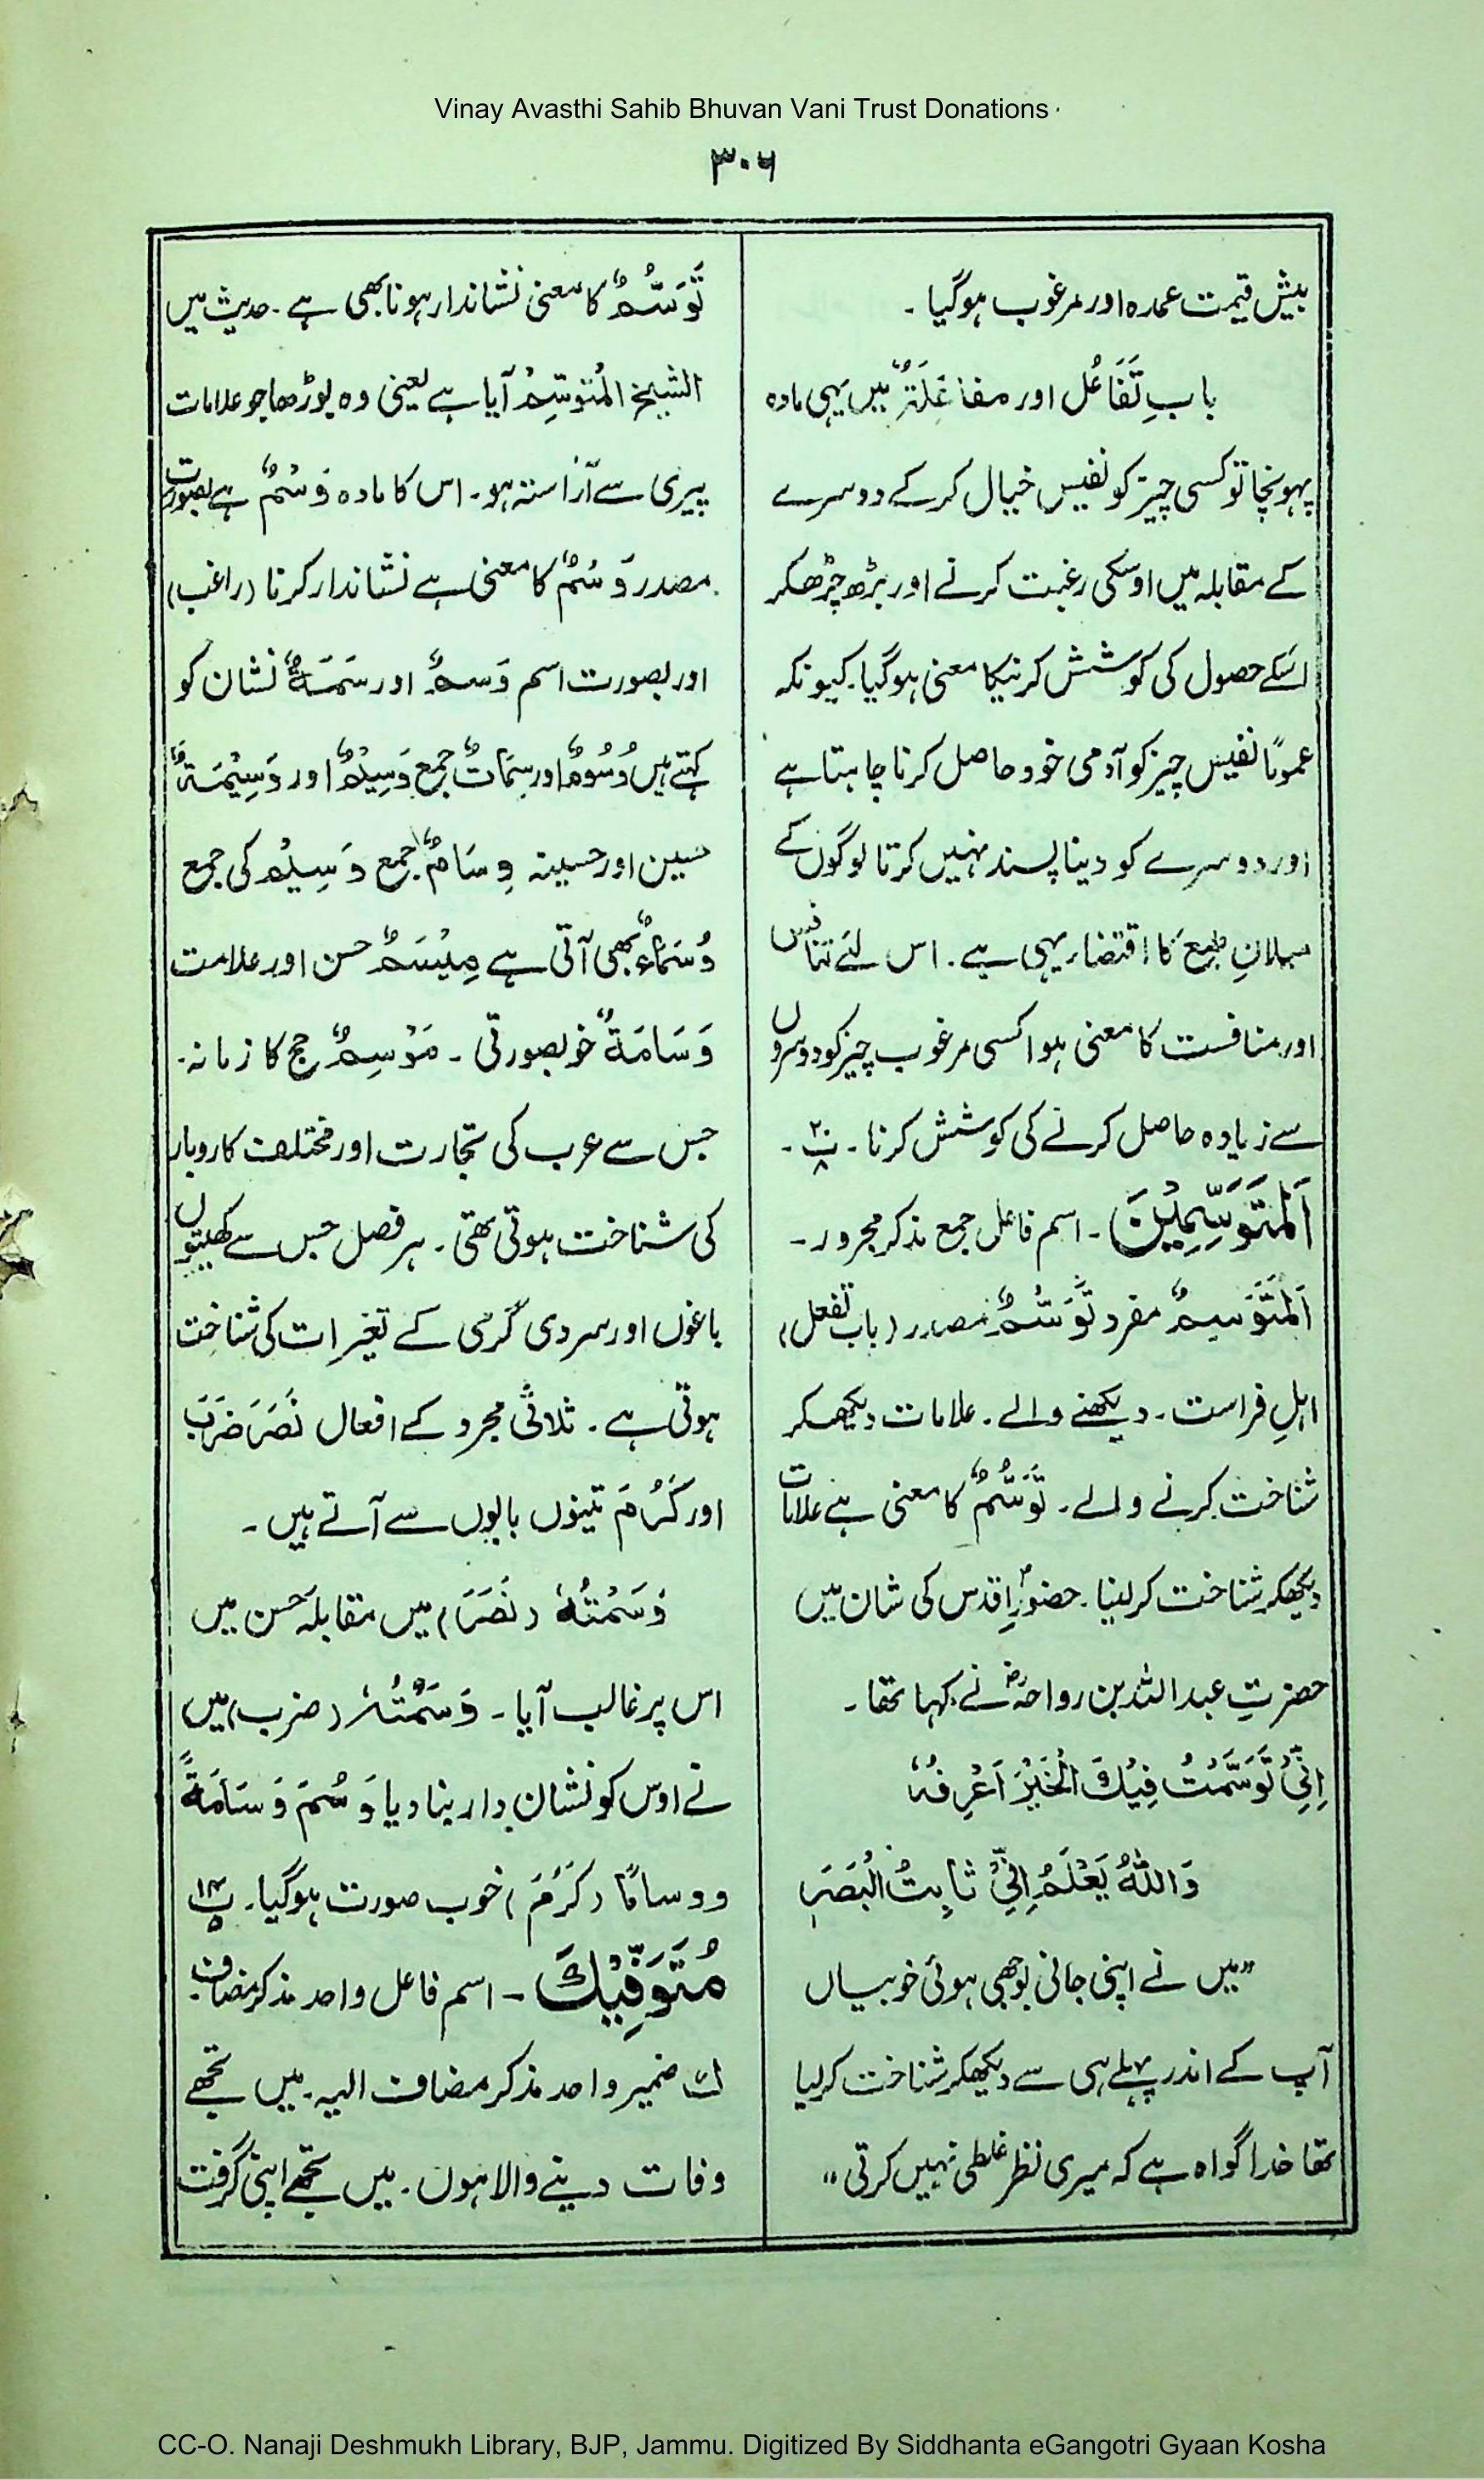 Vinay Avasthi Sahib Bhuvan Vani Trust Donations
۳۰۶
بیش قیمت عمدہ اور مرغوب ہوگیا۔
بابِ تَفَاعُل اور مفاعَلَۃٌ میں یہی مادہ
پہونچا تو کسی چیز کو نفیس خیال کرکے دوسرے
کے مقابلہ میں اوسکی رغبت کرنے اور بڑھ چڑھکر
اسکے حصول کی کوشش کرنیکا معنی ہوگیا۔ کیونکہ
عموماً نفیس چیز کو آدمی خود حاصل کرنا چاہتا ہے
اور دوسرے کو دینا پسند نہیں کرتا لوگوں کے
میلانِ طبع کا اقتضاء یہی ہے۔ اس لئے تنافس
اور منافست کا معنی ہوا کسی مرغوب چیز کو دوسروں
سے زیادہ حاصل کرنے کی کوشش کرنا۔ پ۳۰ ۸۔
اَلْمُتَوَسِّمِیْنَ۔ اسم فاعل جمع مذکر مجرور۔
اَلْمُتَوَسِّمُ مفرد تَوَسُّمٌ مصدر (باب تفعل)
اہلِ فراست۔ دیکھنے والے۔ علامات دیکھکر
شناخت کرنے والے۔ تَوَسُّمٌ کا معنی ہے علامات
دیکھکر شناخت کرلینا۔ حضورِ اقدس کی شان میں
حضرتِ عبداللہ بن رواحہؓ نے کہا تھا۔
اِنِّیْ تَوَسَّمْتُ فِیْكَ الْخَیْرَ اَعْرِفُہٗ
وَاللّٰہُ یَعْلَمُ اِنِّیْ ثَابِتُ الْبَصَرِ
"میں نے اپنی جانی بوجھی ہوئی خوبیاں
آپ کے اندر پہلے ہی سے دیکھکر شناخت کرلیا
تھا خدا گواہ ہے کہ میری نظر غلطی نہیں کرتی"
تَوَسُّمٌ کا معنی نشاندار ہونا بھی ہے۔ حدیث میں
الشیخ المُتَوسِّمُ آیا ہے یعنی وہ بوڑھا جو علامات
پیری سے آراستہ ہو۔ اس کا مادہ وَسْمٌ ہے بصورت
مصدر وَسْمٌ کا معنی ہے نشاندار کرنا (راغب)
اور بصورت اسم وَسمٌ اور سَمَۃٌ نشان کو
کہتے ہیں وُسُومٌ اور سِمَاتٌ جمع وَسِیْمٌ اور وَسِیْمَۃٌ
حسین اور حسینہ وِسَامٌ جمع وَسِیْمٌ کی جمع
وُسَمَاءُ بھی آتی ہے مِیْسَمٌ حسن اور علامت
وَسَامَۃٌ خوبصورتی۔ مَوْسِمٌ حج کا زمانہ۔
جس سے عرب کی تجارت اور مختلف کاروبار
کی شناخت ہوتی تھی۔ ہر فصل جس سے کھیتوں
باغوں اور سردی گرمی کے تغیرات کی شناخت
ہوتی ہے۔ ثلاثی مجرد کے افعال نَصَرَ ضَرَبَ
اور کَرُمَ تینوں بابوں سے آتے ہیں۔
وَسَمْتُہٗ (نَصَرَ) میں مقابلۂ حسن میں
اس پر غالب آیا۔ وَسَمْتُہٗ (ضرب) میں
نے اوس کو نشان دار بنادیا وَسُمَ وَسَامَۃً
ووسامًا (کَرُمَ) خوب صورت ہوگیا۔ پ۱۴ ۵
مُتَوَفِّیْكَ۔ اسم فاعل واحد مذکر مضاف
كَ ضمیر واحد مذکر مضاف الیہ۔ میں تجھے
وفات دینے والا ہوں۔ میں تجھے اپنی گرفت
CC-O. Nanaji Deshmukh Library, BJP, Jammu. Digitized By Siddhanta eGangotri Gyaan Kosha